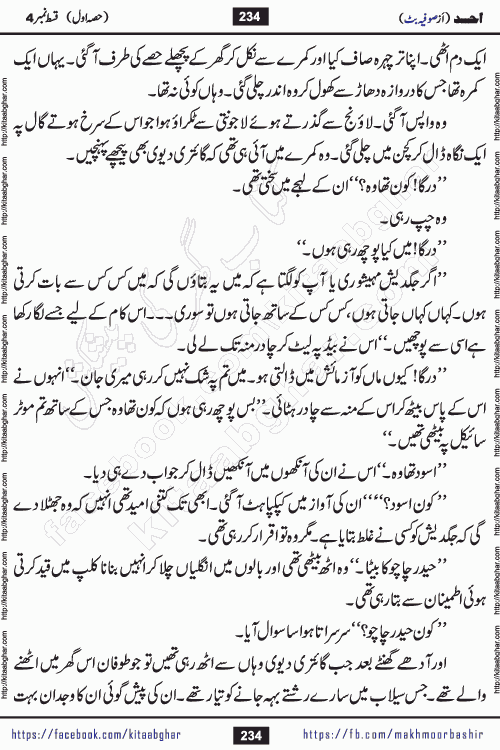 اَحسد (از صوفیہ بٹ)
234
(حصہ اول) قسط نمبر 4
ایک دم اٹھی۔ اپنا تر چہرہ صاف کیا اور کمرے سے نکل کر گھر کے پچھلے حصے کی طرف آ گئی۔ یہاں ایک
کمرہ تھا جس کا دروازہ دھاڑ سے کھول کر وہ اندر چلی گئی۔ وہاں کوئی نہ تھا۔
وہ واپس آ گئی۔ لاؤنج سے گذرتے ہوئے لاجونتی سے ٹکراؤ ہوا جو اس کے سرخ ہوتے گال پہ
ایک نگاہ ڈال کر کچن میں چلی گئی۔ وہ کمرے میں آئی ہی تھی کہ گائتری دیوی بھی پیچھے پہنچیں۔
’’درگا! کون تھا وہ؟‘‘ ان کے لہجے میں سختی تھی۔
وہ چپ رہی۔
’’درگا! میں کیا پوچھ رہی ہوں۔‘‘
’’اگر جگدیش مہیشوری یا آپ کو لگتا ہے کہ میں یہ بتاؤں گی کہ میں کس کس سے بات کرتی
ہوں۔ کہاں کہاں جاتی ہوں، کس کس کے ساتھ جاتی ہوں تو سوری۔۔۔ اس کام کے لیے جسے لگا رکھا
ہے اسی سے پوچھیں۔‘‘ اس نے بیڈ پہ لیٹ کر چادر منہ تک لے لی۔
’’درگا! کیوں ماں کو آزمائش میں ڈالتی ہو۔ میں تم پہ شک نہیں کر رہی میری جان۔‘‘ انہوں نے
اس کے پاس بیٹھ کر اس کے منہ سے چادر ہٹائی۔ ’’بس پوچھ رہی ہوں کہ کون تھا وہ جس کے ساتھ تم موٹر
سائیکل پہ بیٹھی تھیں۔‘‘
’’اسود تھا وہ۔‘‘ اس نے ان کی آنکھوں میں آنکھیں ڈال کر جواب دے ہی دیا۔
’’کون اسود؟‘‘‘‘ ان کی آواز میں کپکپاہٹ آ گئی۔ ابھی تک کتنی امید تھی انہیں کہ وہ جھٹلا دے
گی کہ جگدیش کو کسی نے غلط بتایا ہے۔ مگر وہ تو اقرار کر رہی تھی۔
’’حیدر چاچو کا بیٹا۔‘‘ وہ اٹھ بیٹھی تھی اور بالوں میں انگلیاں چلا کر انہیں بنانا کلپ میں قید کرتی
ہوئی اطمینان سے بتا رہی تھی۔
’’کون حیدر چاچو؟‘‘ سرسراتا ہوا سا سوال آیا۔
اور آدھے گھنٹے بعد جب گائتری دیوی وہاں سے اٹھ رہی تھیں تو جو طوفان اس گھر میں اٹھنے
والے تھے۔ جس سیلاب میں سارے رشتے بہہ جانے کو تیار تھے۔ ان کی پیش گوئی ان کا وجدان بہت
https://facebook.com/kitaabghar
234
https://fb.com/makhmoorbashir
http://kitaabghar.com
کتاب گھر کی پیشکش
facebook.com/kitaabghar
kitaabghar.com